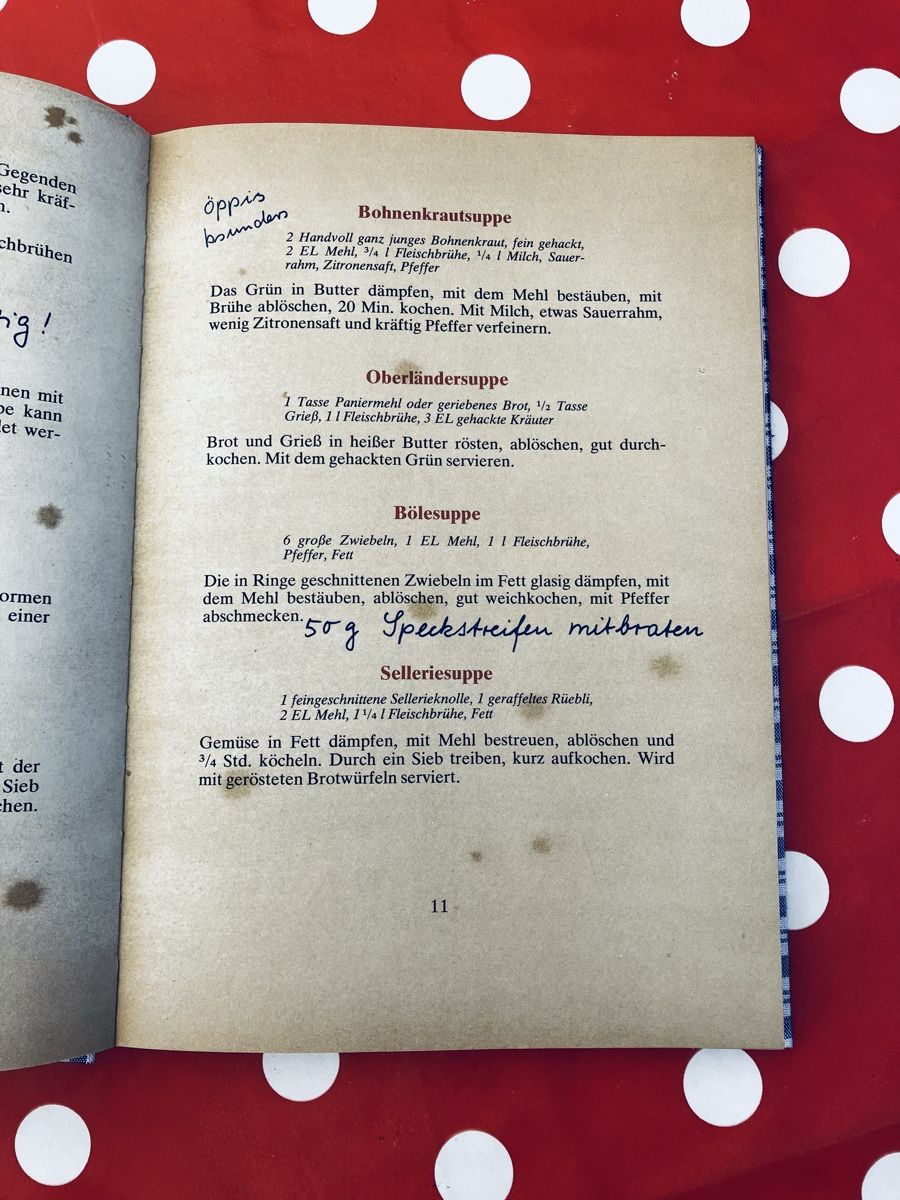 Gegenden
sehr kräf-
n.
chbrühen
ig!
nen mit
pe kann
let wer-
ormen
einer
t der
Sieb
chen.
öppis
bsunders
Bohnenkrautsuppe
2 Handvoll ganz junges Bohnenkraut, fein gehackt,
2 EL Mehl, 3/4 l Fleischbrühe, 1/4 l Milch, Sauer-
rahm, Zitronensaft, Pfeffer
Das Grün in Butter dämpfen, mit dem Mehl bestäuben, mit
Brühe ablöschen, 20 Min. kochen. Mit Milch, etwas Sauerrahm,
wenig Zitronensaft und kräftig Pfeffer verfeinern.
Oberländersuppe
1 Tasse Paniermehl oder geriebenes Brot, 1/2 Tasse
Grieß, 1 l Fleischbrühe, 3 EL gehackte Kräuter
Brot und Grieß in heißer Butter rösten, ablöschen, gut durch-
kochen. Mit dem gehackten Grün servieren.
Bölesuppe
6 große Zwiebeln, 1 EL Mehl, 1 l Fleischbrühe,
Pfeffer, Fett
Die in Ringe geschnittenen Zwiebeln im Fett glasig dämpfen, mit
dem Mehl bestäuben, ablöschen, gut weichkochen, mit Pfeffer
abschmecken.
50 g Speckstreifen mitbraten
Selleriesuppe
1 feingeschnittene Sellerieknolle, 1 geraffeltes Rüebli,
2 EL Mehl, 1 1/4 l Fleischbrühe, Fett
Gemüse in Fett dämpfen, mit Mehl bestreuen, ablöschen und
3/4 Std. köcheln. Durch ein Sieb treiben, kurz aufkochen. Wird
mit gerösteten Brotwürfeln serviert.
11